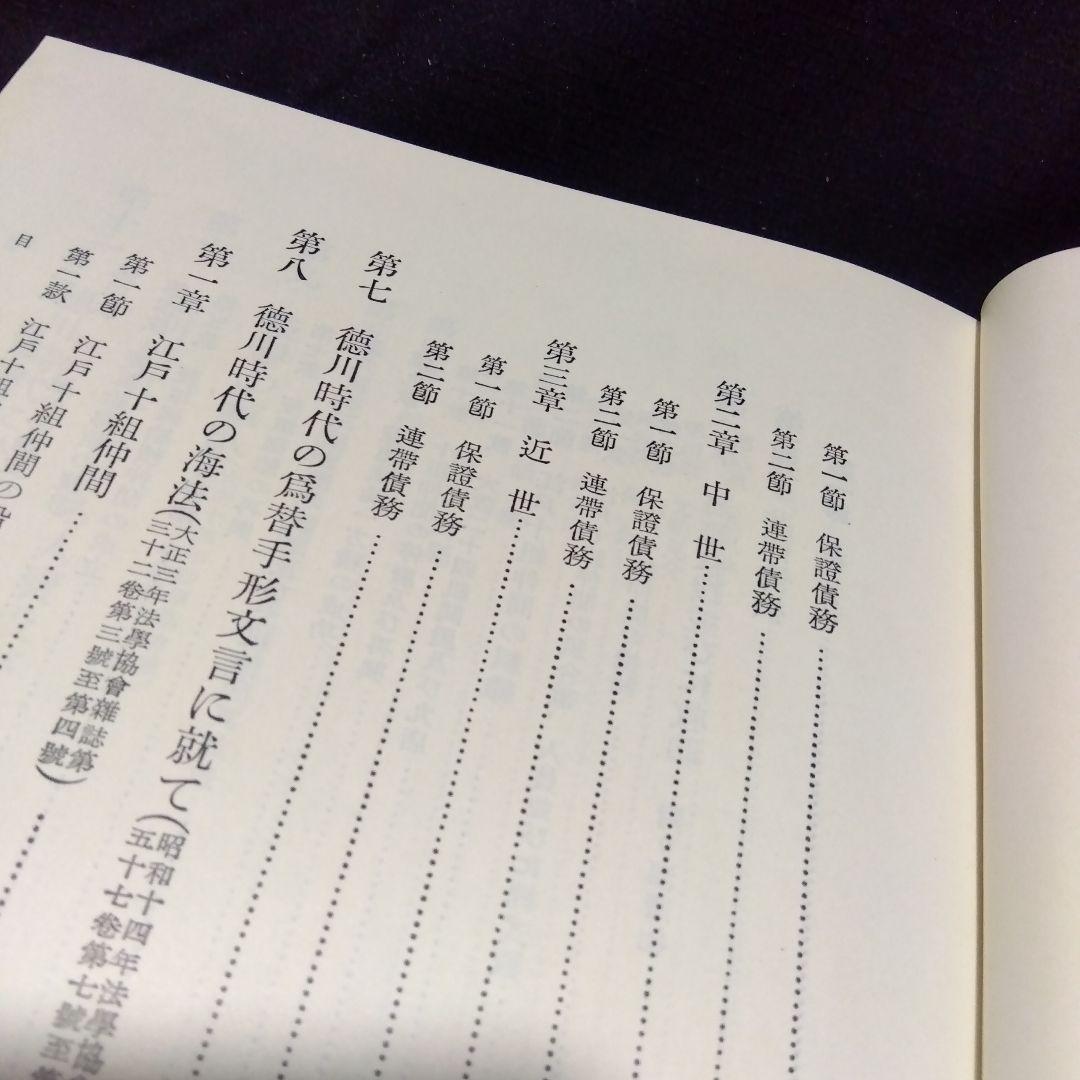 第一節 保證債務…………
第二節 連帶債務…………
第二章 中世…………
第一節 保證債務…………
第二節 連帶債務…………
第三章 近世…………
第一節 保證債務…………
第二節 連帶債務…………
第七 德川時代の爲替手形文言に就て(昭和十四年法學協
五十七卷第七號至第
第八 德川時代の海法(大正三年法學協會雜誌第
三十二卷第三號至第四號)…………
第一章 江戸十組仲間…………
第一節 江戸十組仲間
第一款 江戸十組
目